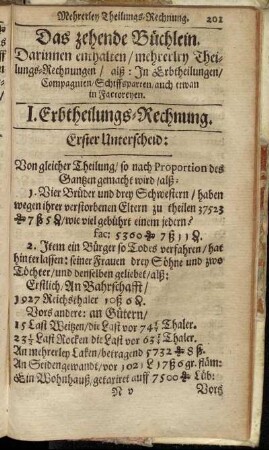 Mehrerley Theilungs-Rechnung. 201
Das zehende Büchlein.
Darinnen enthalten / mehrerley Thei-
lungs-Rechnungen / alß: In Erbtheilungen /
Compagnien / Schiffsparten, auch etwan
in Factoreyen.
I. Erbtheilungs-Rechnung.
Erster Unterscheid:
Von gleicher Theilung / so nach Proportion des
Gantzen gemacht wird / alß:
1. Vier Brüder und drey Schwestern / haben
wegen ihrer verstorbenen Eltern zu theilen 37523
7 ß 5 / wie viel gebührt einem jedern?
fac: 5360 7 ß 11
2. Item ein Bürger so Todes verfahren / hat
hinterlassen: seiner Frauen drey Söhne und zwo
Töchter / und denselben geliebet / alß:
Erstlich, An Bahrschafft /
1927 Reichsthaler 10 ß 6
Vors andere: an Gütern /
15 Last Weitzen / die Last vor 74 Thaler.
23½ Last Rocken die Last vor 63 Thaler.
An mehrerley Laken / betragend 5732 8 ß.
An Seidengewandt / vor 102
Ein Wohnhauß / getaxiret auff 7500 Lüb:
N v Vors